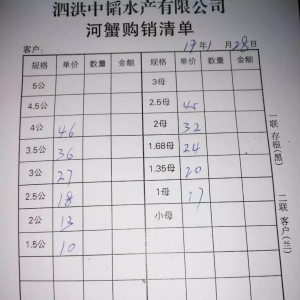 泗洪中韬水产有限公司
河蟹购销清单
客户： 19年1月28日
规格 单价 数量 金额 规格 单价 数量 金额
5公 3母
4.5公 2.5母 45
4公 46 2母 32
3.5公 36 1.68母 24
3公 27 1.35母 20
2.5公 18 1母 17
2公 13 小母
1.5公 10
一联 存根(黑)
二联 客户(兰)